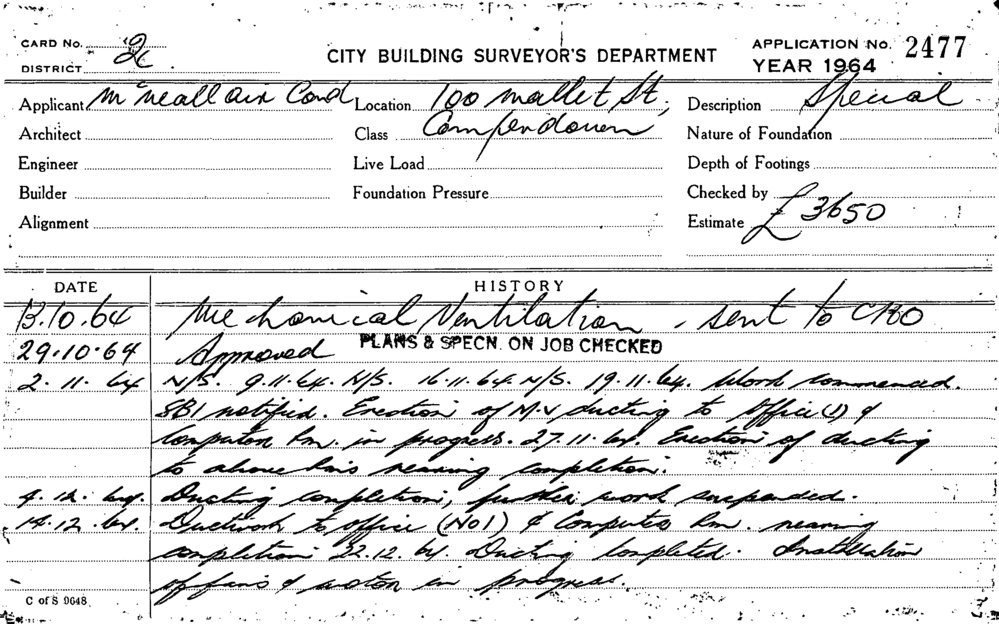 CARD No. 2
DISTRICT
CITY BUILDING SURVEYOR'S DEPARTMENT
APPLICATION No. 2477
YEAR 1964
Applicant McNeall Air Cond Location 100 Mallet St, Description Special
Architect Class Camperdown Nature of Foundation
Engineer Live Load Depth of Footings
Builder Foundation Pressure Checked by
Alignment Estimate £3650
DATE HISTORY
13.10.64 Mechanical Ventilation - sent to CBO
29.10.64 Approved PLANS & SPECN. ON JOB CHECKED
2.11.64 N/S. 9.11.64. N/S. 16.11.64 N/S. 19.11.64. Work commenced.
SBI notified. Erection of M.V ducting to office (1) &
Computor Rm. in progress. 27.11.64. Erection of ducting
to above nearing completion.
4.12.64. Ducting completion, further work suspended.
14.12.64. Ductwork to office (No1) & Computer Rm. nearing
completion 22.12.64. Ducting completed. Installation
of fans & motor in progress.
C of S 9648